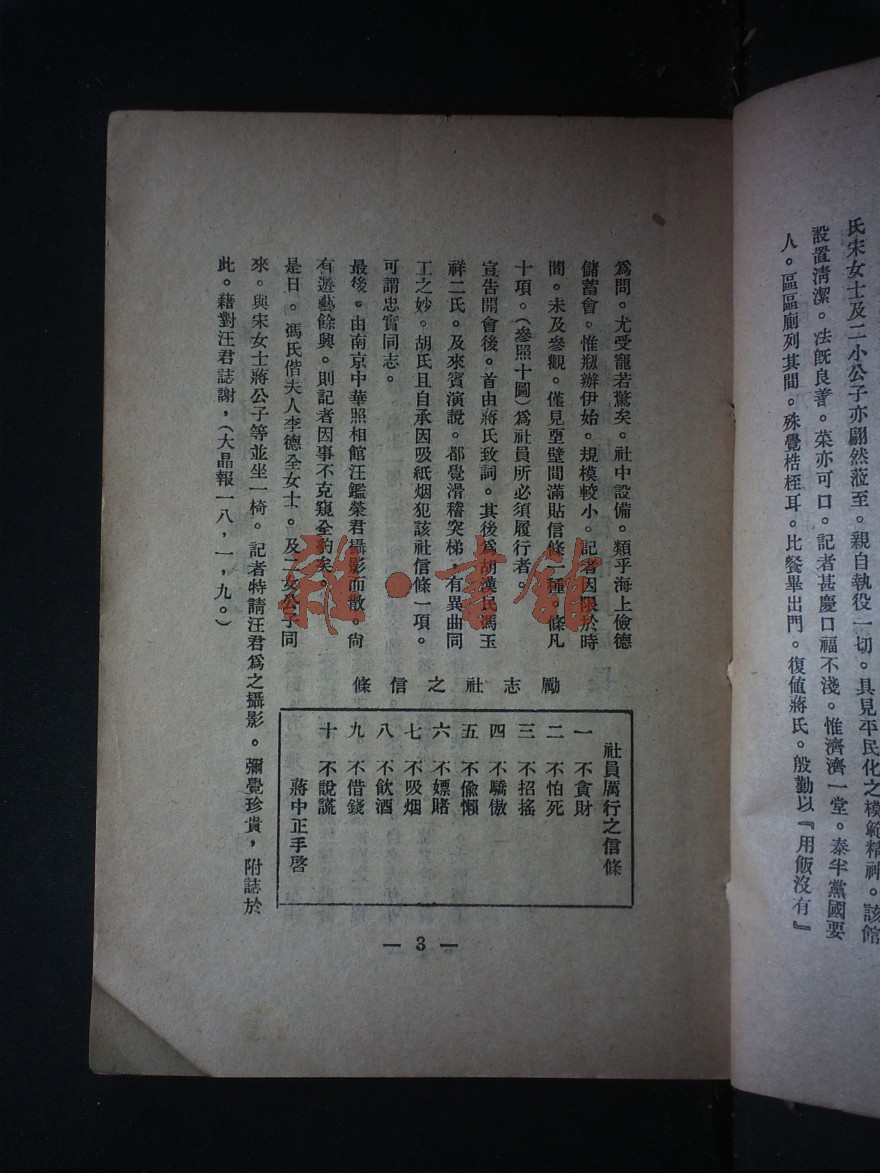 氏宋女士及二小公子亦翩然蒞至。親自執役一切。具見平民化之模範精神。該館
設置清潔。法旣良善。菜亦可口。記者甚慶口福不淺。惟濟濟一堂。泰半黨國要
人。區區廁列其間。殊覺梏桎耳。比餐畢出門。復値蔣氏。殷勤以『用飯沒有』
爲問。尤受寵若驚矣。社中設備。類乎海上儉德
儲蓄會。惟剏辦伊始。規模較小。記者因限於時
間。未及參觀。僅見堊壁間滿貼信條一種。條凡
十項。（參照十圖）爲社員所必須履行者。
宣告開會後。首由蔣氏致詞。其後爲胡漢民馮玉
祥二氏。及來賓演說。都覺滑稽突梯，有異曲同
工之妙。胡氏且自承因吸紙烟犯該社信條一項。
可謂忠實同志。
最後。由南京中華照相館汪鑑榮君攝影而散。尙
有遊藝餘興。則記者因事不克窺全豹矣。
是日。馮氏偕夫人李德全女士。及二女公子同
來。與宋女士蔣公子等並坐一椅。記者特請汪君爲之攝影。彌覺珍貴，附誌於
此。藉對汪君誌謝，（大晶報一八，一，九。）
勵志社之信條
社員厲行之信條
一 不貪財
二 不怕死
三 不招搖
四 不驕傲
五 不偸懶
六 不嫖賭
七 不吸烟
八 不飮酒
九 不借錢
十 不說謊
蔣中正手啓
— 3 —
雜·書館